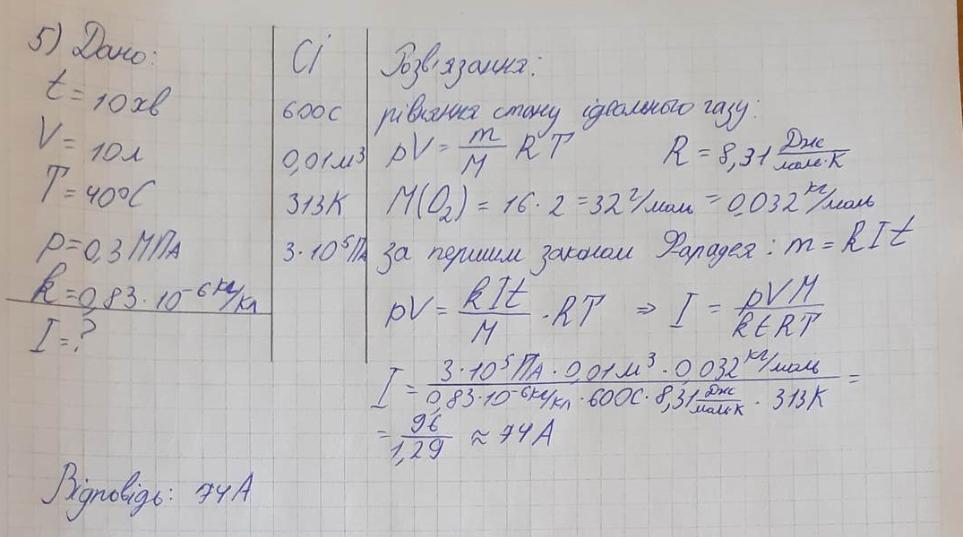 5) Дано:
t = 10хв
V = 10л
T = 40°C
p = 0,3 МПа
k = 0,83 · 10⁻⁶ кг/Кл
I = ?
Сі
600с
0,01м³
313К
3 · 10⁵ Па
Розв'язання:
рівняння стану ідеального газу:
pV = m/M RT R = 8,31 Дж/моль·К
M(O₂) = 16 · 2 = 32 г/моль = 0,032 кг/моль
за першим законом Фарадея: m = kIt
pV = kIt/M · RT ⇒ I = pVM/ktRT
I = 3·10⁵Па · 0,01м³ · 0,032 кг/моль / 0,83·10⁻⁶кг/кл · 600с · 8,31 Дж/моль·К · 313К =
= 96/1,29 ≈ 74А
Відповідь: 74А